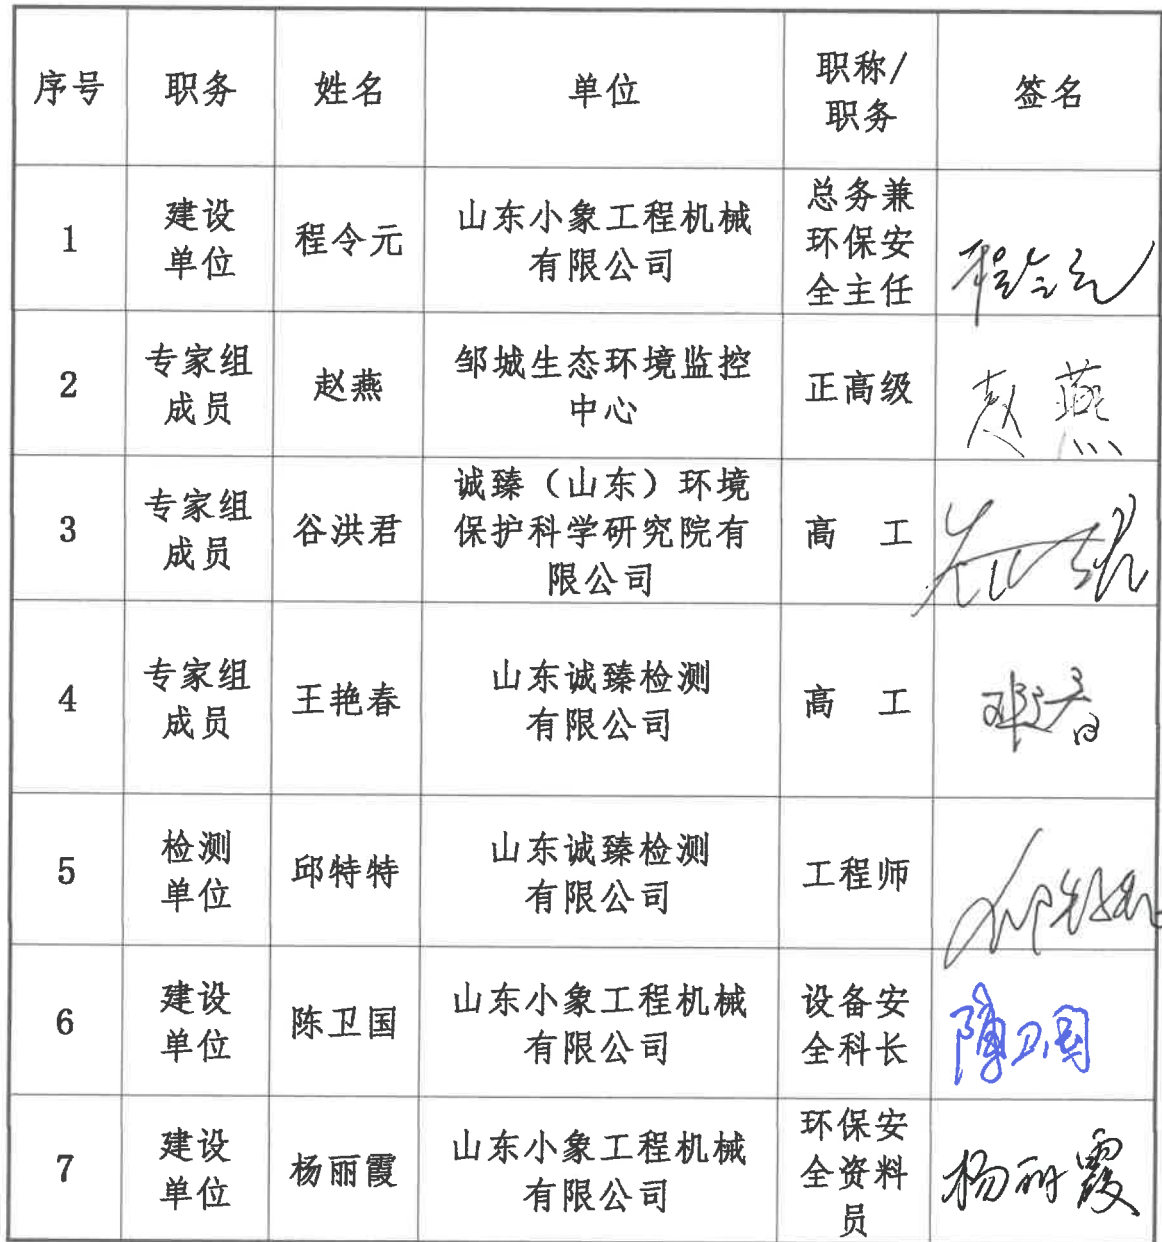 序号 职务 姓名 单位 职称/
职务 签名
1 建设
单位 程令元 山东小象工程机械
有限公司 总务兼
环保安
全主任 程令元
2 专家组
成员 赵燕 邹城生态环境监控
中心 正高级 赵燕
3 专家组
成员 谷洪君 诚臻（山东）环境
保护科学研究院有
限公司 高 工
4 专家组
成员 王艳春 山东诚臻检测
有限公司 高 工
5 检测
单位 邱特特 山东诚臻检测
有限公司 工程师 邱特特
6 建设
单位 陈卫国 山东小象工程机械
有限公司 设备安
全科长 陈卫国
7 建设
单位 杨丽霞 山东小象工程机械
有限公司 环保安
全资料
员 杨丽霞